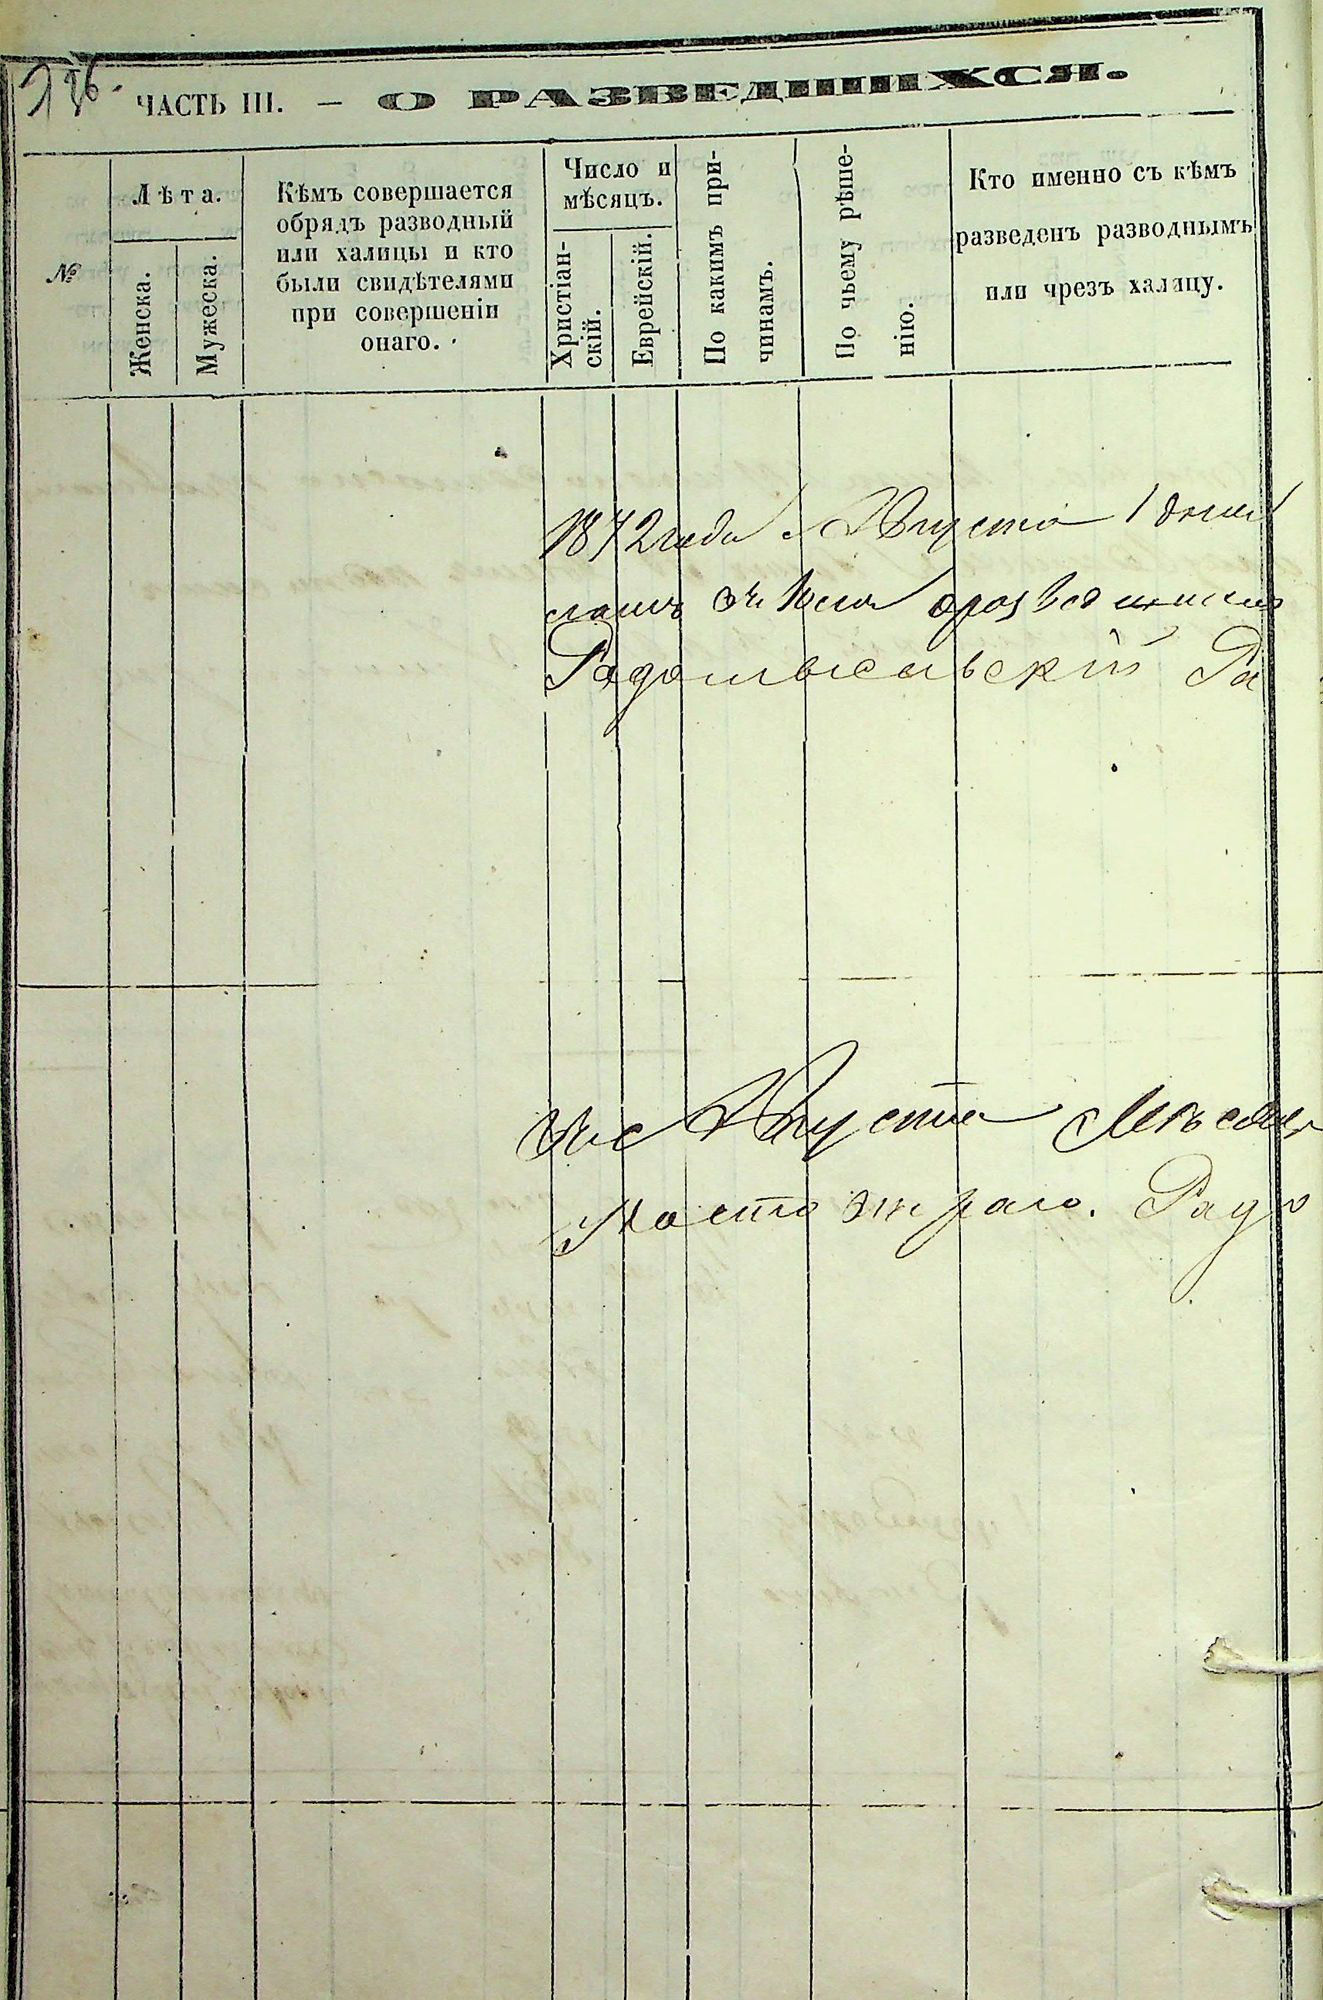 136.
ЧАСТЬ III. — О РАЗВЕДШИХСЯ.
№
Лѣта.
Женска.
Мужеска.
Кѣмъ совершается
обрядъ разводный
или халицы и кто
были свидѣтелями
при совершеніи
онаго.
Число и
мѣсяцъ.
Христіан-
скій.
Еврейскій.
По какимъ при-
чинамъ.
По чьему рѣше-
нію.
Кто именно съ кѣмъ
разведенъ разводнымъ
или чрезъ халицу.
1872 года Августа 1 дня
Радомысльскій Ра
Августа Мѣсяц